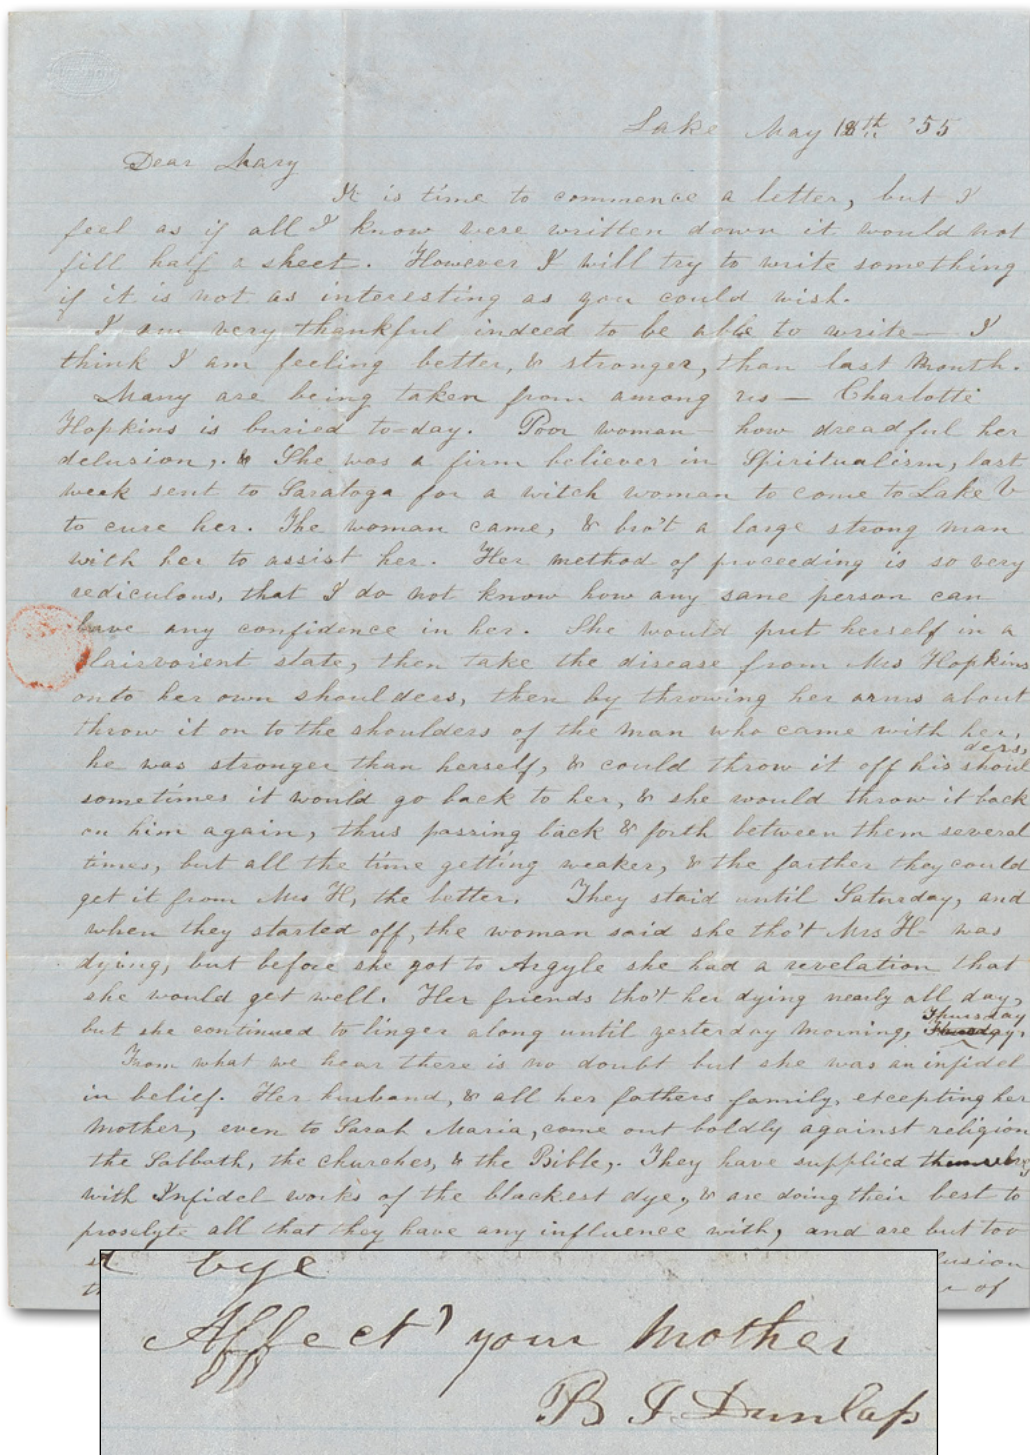 Lake May 18th '55
Dear Mary
It is time to commence a letter, but I
feel as if all I know were written down it would not
fill half a sheet. However I will try to write something
if it is not as interesting as you could wish.
I am very thankful indeed to be able to write— I
think I am feeling better, & stronger, than last month.
Many are being taken from among us — Charlotte
Hopkins is buried to-day. Poor woman — how dreadful her
delusion,. & She was a firm believer in Spiritualism, last
week sent to Saratoga for a witch woman to come to Lake V
to cure her. The woman came, & bro't a large strong man
with her to assist her. Her method of proceeding is so very
rediculous, that I do not know how any sane person can
have any confidence in her. She would put herself in a
clairvoient state, then take the disease from Mrs Hopkins
onto her own shoulders, then by throwing her arms about
throw it on to the shoulders of the man who came with her,
he was stronger than herself, & could throw it off his shoulders,
sometimes it would go back to her, & she would throw it back
on him again, thus passing back & forth between them several
times, but all the time getting weaker, & the farther they could
get it from Mrs H, the better. They staid until Saturday, and
when they started off, the woman said she tho't Mrs H— was
dying, but before she got to Argyle she had a revelation that
she would get well. Her friends tho't her dying nearly all day,
but she continued to linger along until yesterday morning, Thursday
From what we hear there is no doubt but she was an infidel
in belief. Her husband, & all her fathers family, excepting her
Mother, even to Sarah Maria, come out boldly against religion
the Sabbath, the churches, & the Bible,. They have supplied themselves
with Infidel works of the blackest dye, & are doing their best to
proselyte all that they have any influence with, and are but too
lusion
of
bye
Affect' your Mother
B J Dunlap